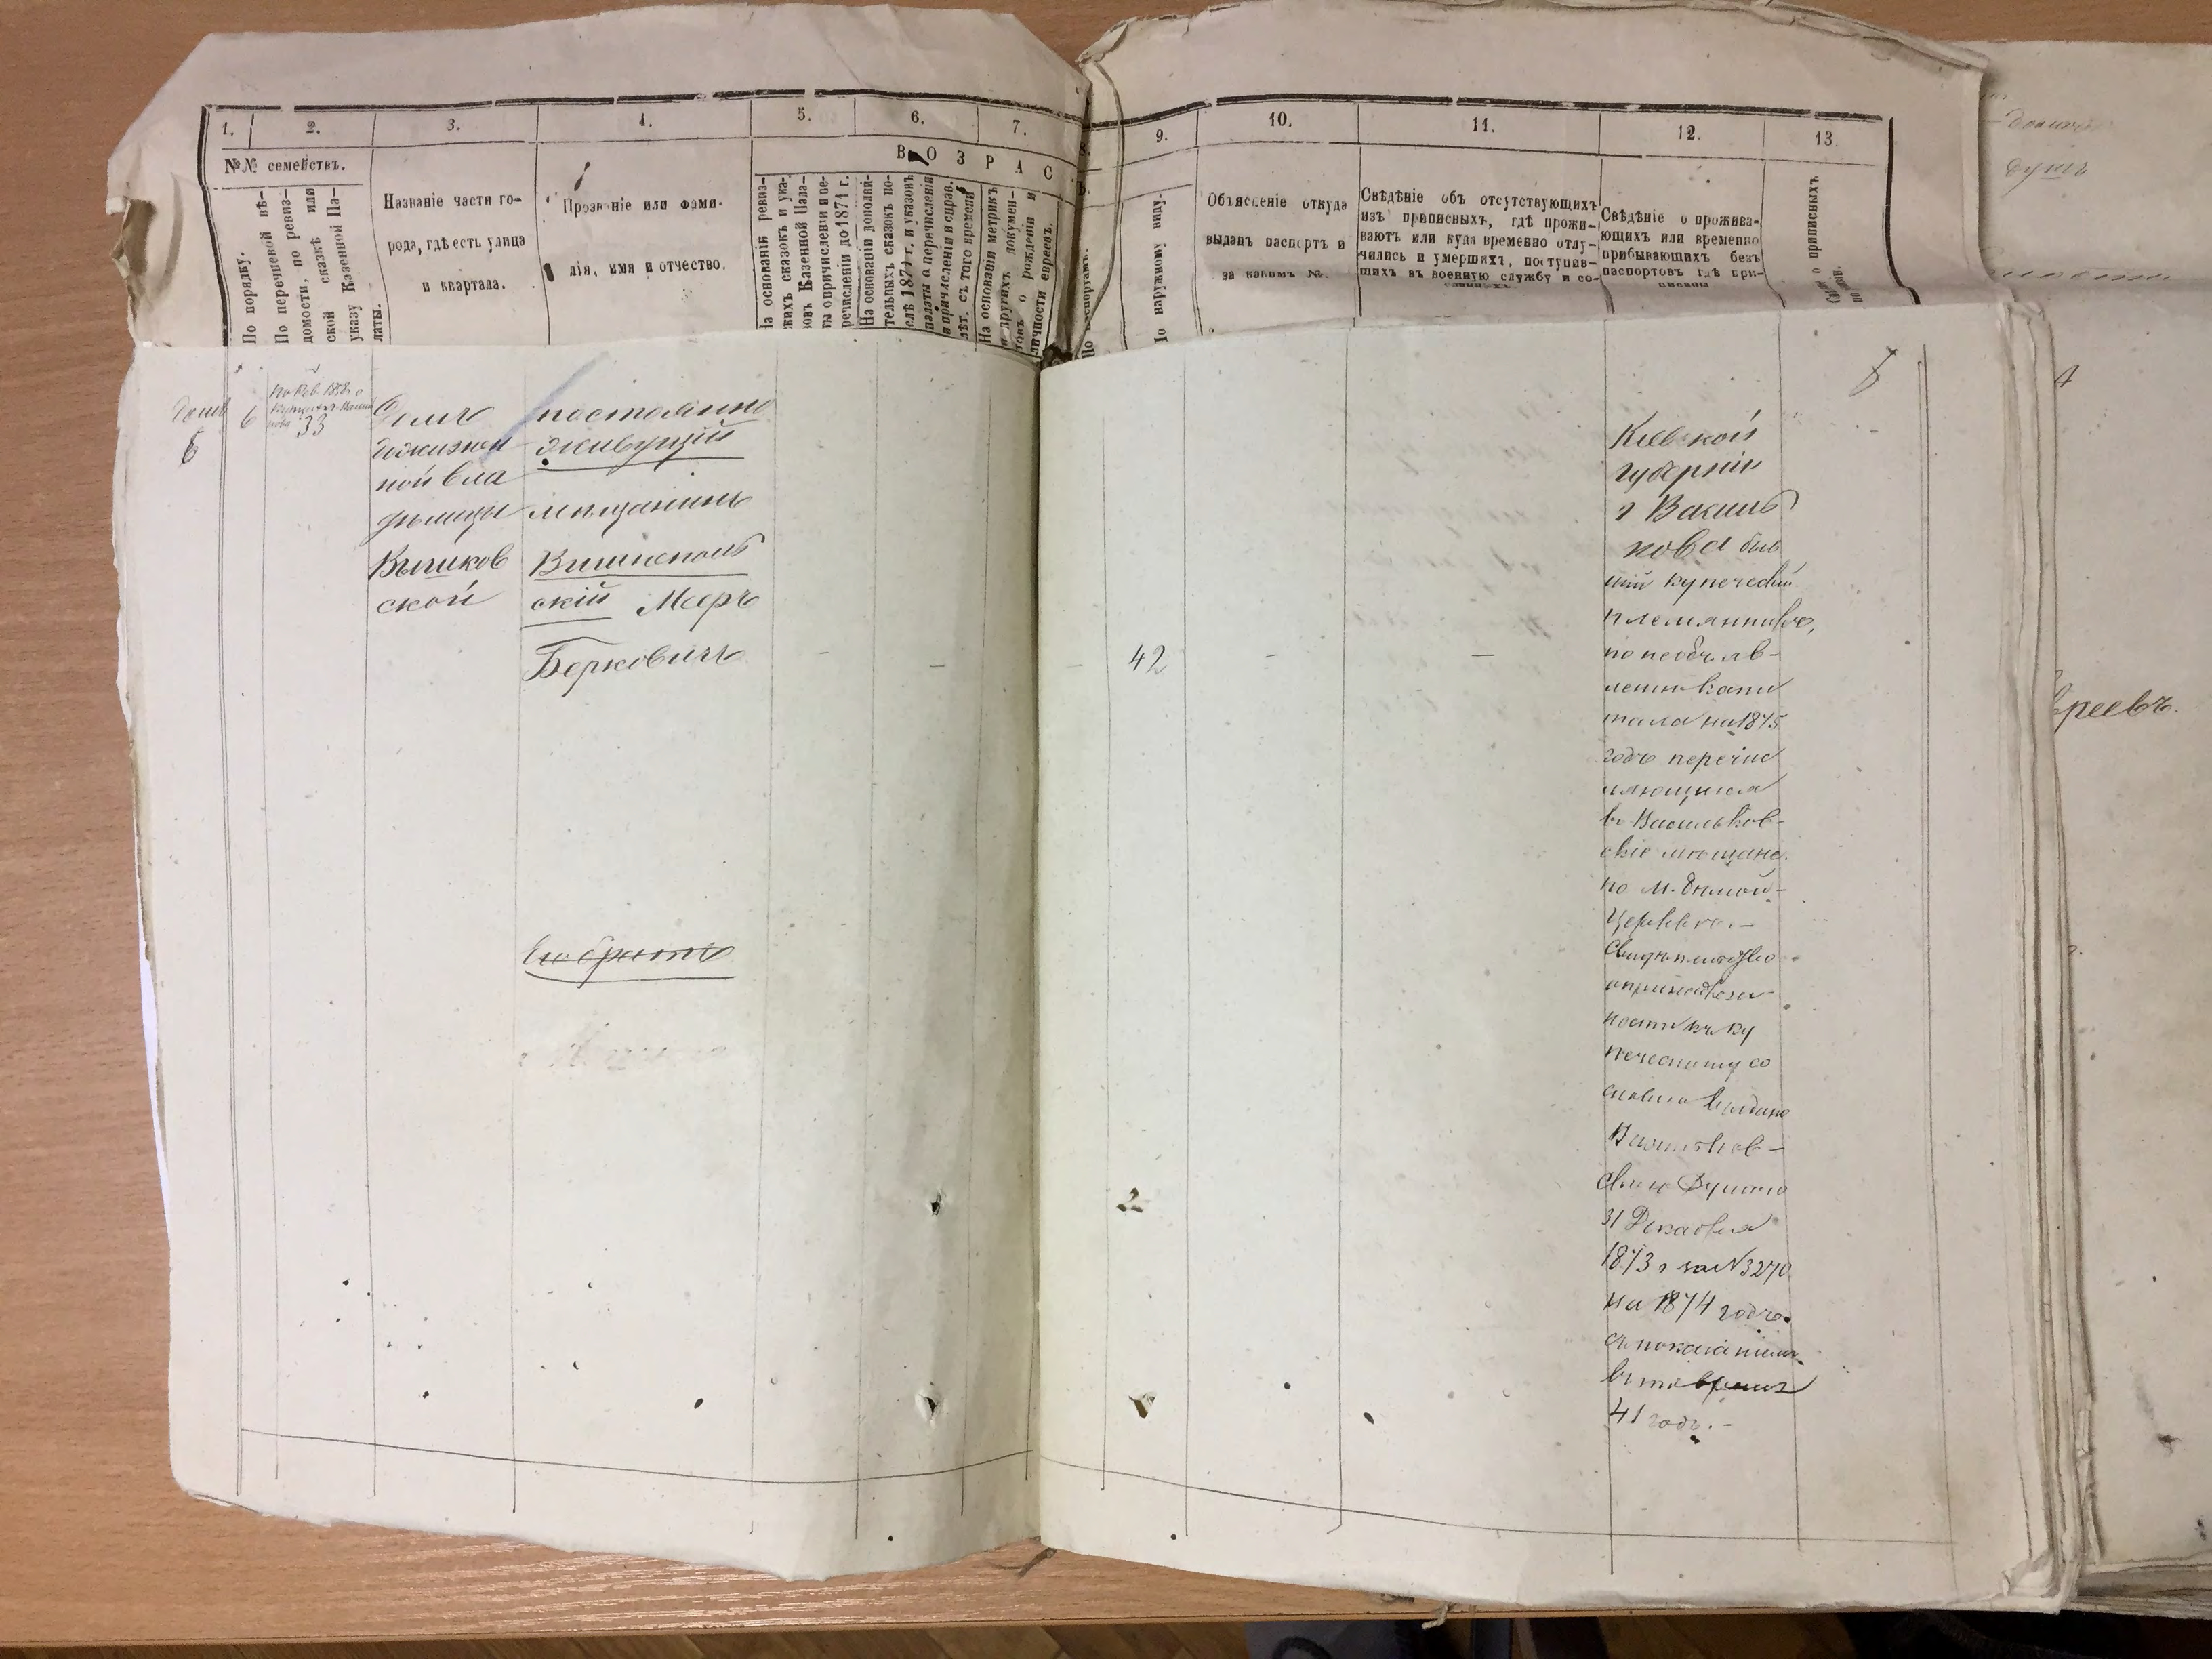 1.
2.
3.
4.
5.
6.
7.
8.
9.
10.
11.
12.
13.
№№ семействъ.
По порядку.
По перечневой вѣ-
домости, по ревиз-
ской сказкѣ или
указу Казенной Па-
латы.
Названіе части го-
рода, гдѣ есть улица
и квартала.
Прозваніе или фами-
лія, имя и отчество.
ВОЗРАС
На основаніи ревиз-
жихъ сказокъ и ука-
зовъ Казенной Пала-
ты о причисленіи и пе-
речисленіи до 1871 г.
На основаніи дополни-
тельныхъ сказокъ по-
слѣ 1871 г. и указовъ
палаты о перечисленіи
и причисленіи и справ.
лѣт. съ того времени
На основаніи метрикъ
и другихъ докумен-
товъ о рожденіи и
личности евреевъ.
По паспортамъ.
По наружному виду.
Объясненіе откуда
выданъ паспортъ и
за какимъ №.
Свѣдѣніе объ отсутствующихъ
изъ приписныхъ, гдѣ прожи-
ваютъ или куда временно отлу-
чились и умершихъ, поступив-
шихъ въ военную службу и со-
Свѣдѣніе о прожива-
ющихъ или временно
прибывающихъ безъ
паспортовъ гдѣ при-
писаны
о приписныхъ
домъ
6
6
по Рев. 1858 г.
33
Домъ
ной вла
дѣлицы
Бѣликов
ской
постоянно
живущій
мѣщанинъ
Вишнеполь
скій Мееръ
Берковичъ
Его братъ
42
Кіевской
губерніи
г Василь
кова быв
шій купеческій
племянникъ,
по необъяв-
ленію капи
тала на 1875
годъ перечис
ляющійся
въ Васильков-
скіе мѣщане
по м. Бѣлой-
Церкви. —
Свидѣтельство
о принадлеж
ности къ ку
печескому со
словію выдано
Васильков-
скою Думою
31 Декабря
1873 г за N 3270
на 1874 годъ.
съ показаніемъ
въ то время
41 годъ. —
душъ
евреевъ.